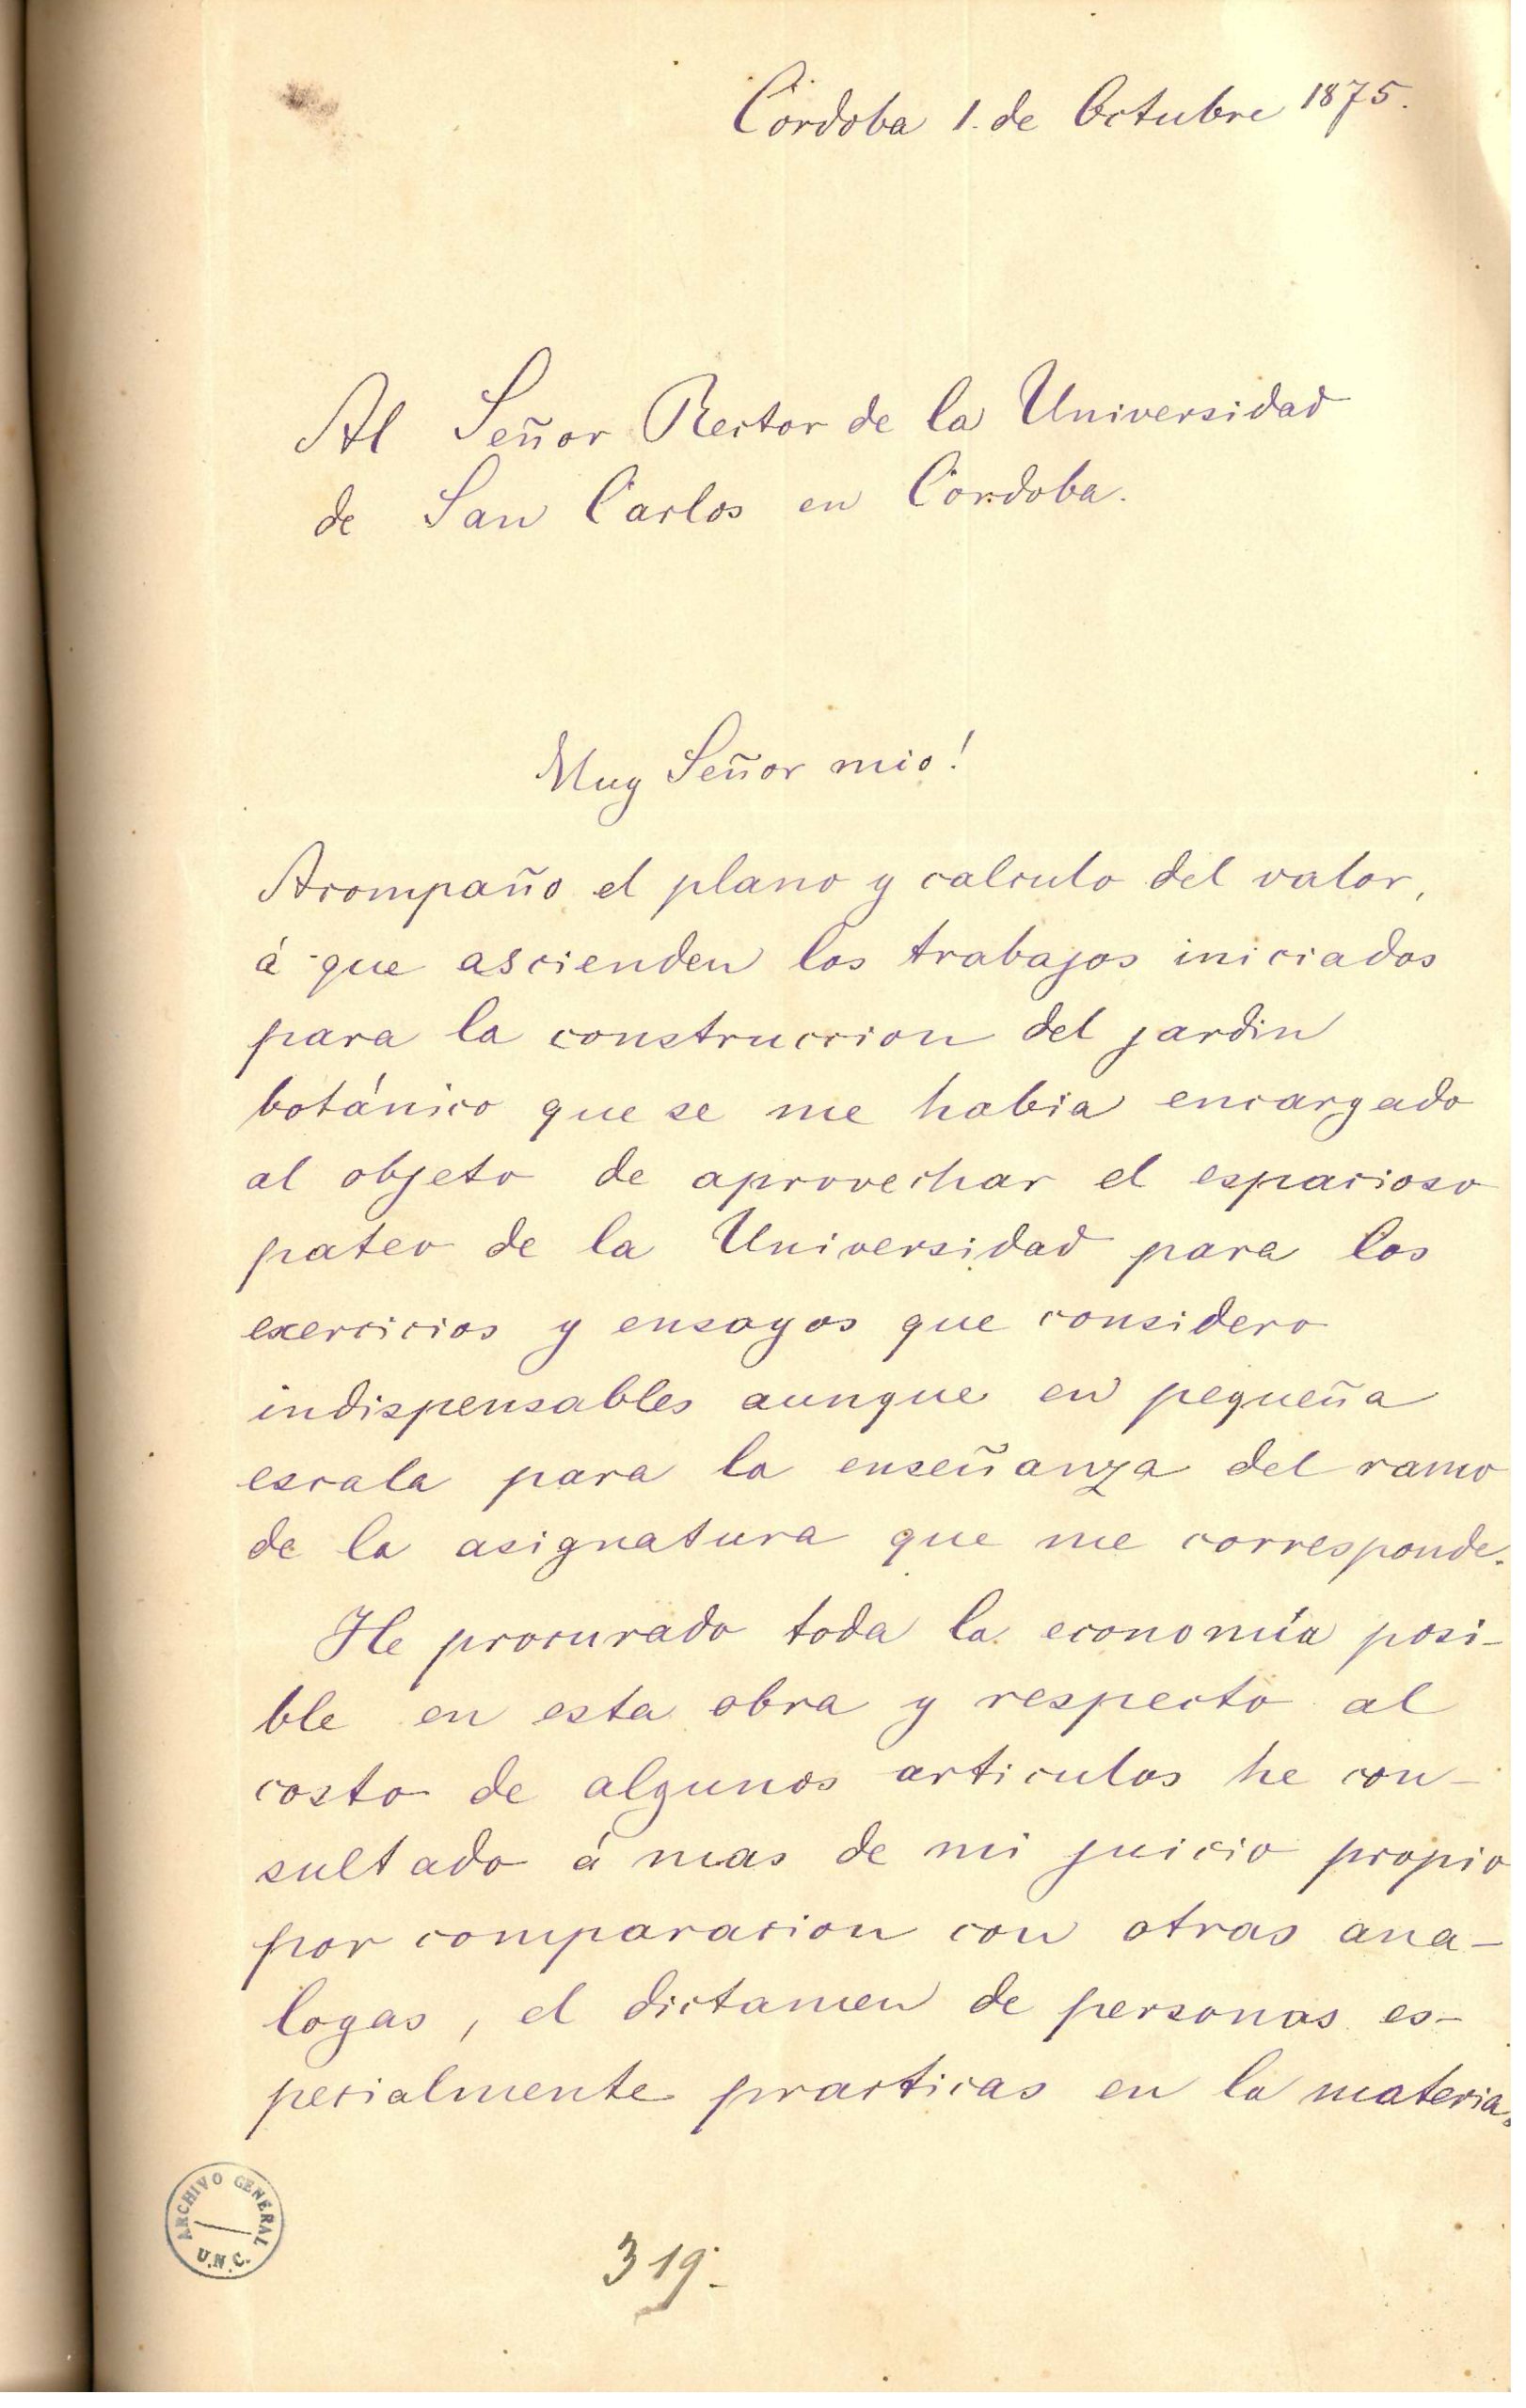 Córdoba 1. de Octubre 1875.
Al Señor Rector de la Universidad
de San Carlos en Córdoba.
Muy Señor mio!
Acompaño el plano y calculo del valor,
á que ascienden los trabajos iniciados
para la construccion del jardin
botánico que se me habia encargado
al objeto de aprovechar el espacioso
pateo de la Universidad para los
exercicios y ensayos que considero
indispensables aunque en pequeña
escala para la enseñanza del ramo
de la asignatura que me corresponde.
He procurado toda la economía posi-
ble en esta obra y respecto al
costo de algunos articulos he con-
sultado á mas de mi juicio propio
por comparacion con otras ana-
logas, el dictamen de personas es-
pecialmente practicas en la materia.
ARCHIVO GENERAL
U.N.C.
319.